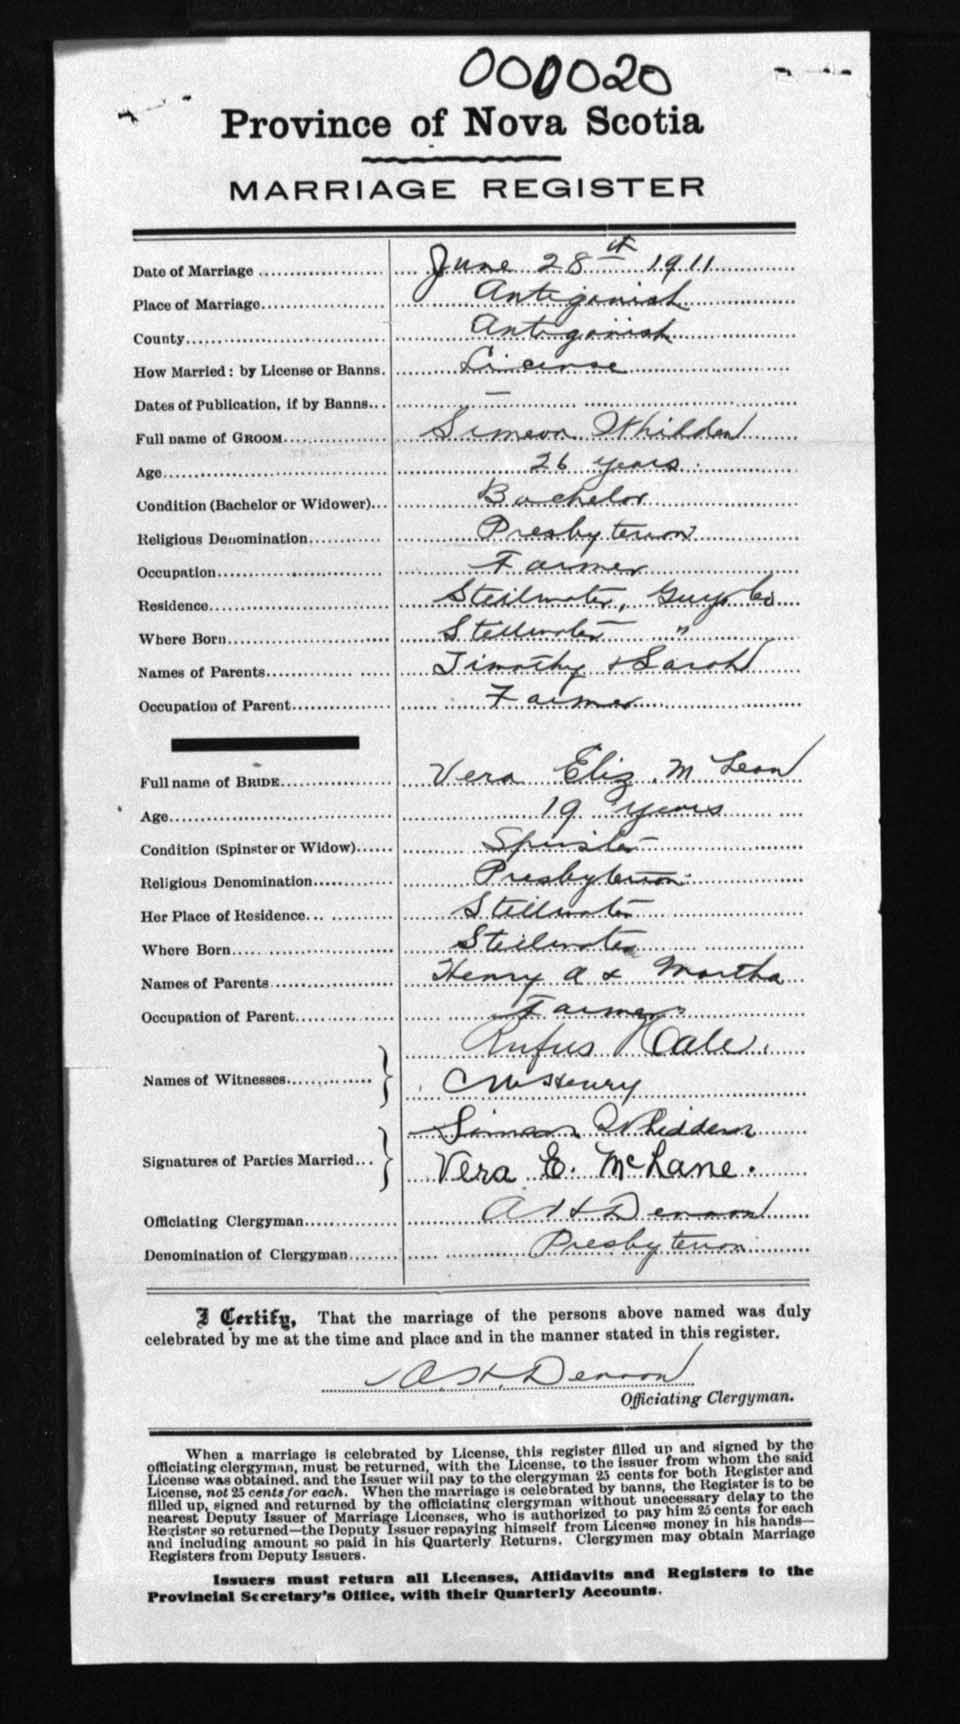 000020
Province of Nova Scotia
MARRIAGE REGISTER
Date of Marriage ..... June 28th 1911
Place of Marriage..... Antigonish
County..... Antigonish
How Married: by License or Banns. License
Dates of Publication, if by Banns... —
Full name of GROOM..... Simeon Whidden
Age..... 26 years
Condition (Bachelor or Widower)... Bachelor
Religious Denomination..... Presbyterian
Occupation..... Farmer
Residence..... Stillwater, Guys Co
Where Born..... Stillwater "
Names of Parents..... Timothy & Sarah
Occupation of Parent..... Farmer
Full name of BRIDE..... Vera Eliz. McLean
Age..... 19 years
Condition (Spinster or Widow)..... Spinster
Religious Denomination..... Presbyterian
Her Place of Residence..... Stillwater
Where Born..... Stillwater
Names of Parents..... Henry A & Martha
Occupation of Parent..... Farmer
Names of Witnesses..... Rufus Hale.
C McHenry
Signatures of Parties Married... Simeon Whidden
Vera E. McLane.
Officiating Clergyman..... A H Denoon
Denomination of Clergyman..... Presbyterian
I Certify, That the marriage of the persons above named was duly
celebrated by me at the time and place and in the manner stated in this register.
A. H. Denoon
Officiating Clergyman.
When a marriage is celebrated by License, this register filled up and signed by the
officiating clergyman, must be returned, with the License, to the issuer from whom the said
License was obtained, and the Issuer will pay to the clergyman 25 cents for both Register and
License, not 25 cents for each. When the marriage is celebrated by banns, the Register is to be
filled up, signed and returned by the officiating clergyman without unnecessary delay to the
nearest Deputy Issuer of Marriage Licenses, who is authorized to pay him 25 cents for each
Register so returned—the Deputy Issuer repaying himself from License money in his hands—
and including amount so paid in his Quarterly Returns. Clergymen may obtain Marriage
Registers from Deputy Issuers.
Issuers must return all Licenses, Affidavits and Registers to the
Provincial Secretary's Office, with their Quarterly Accounts.